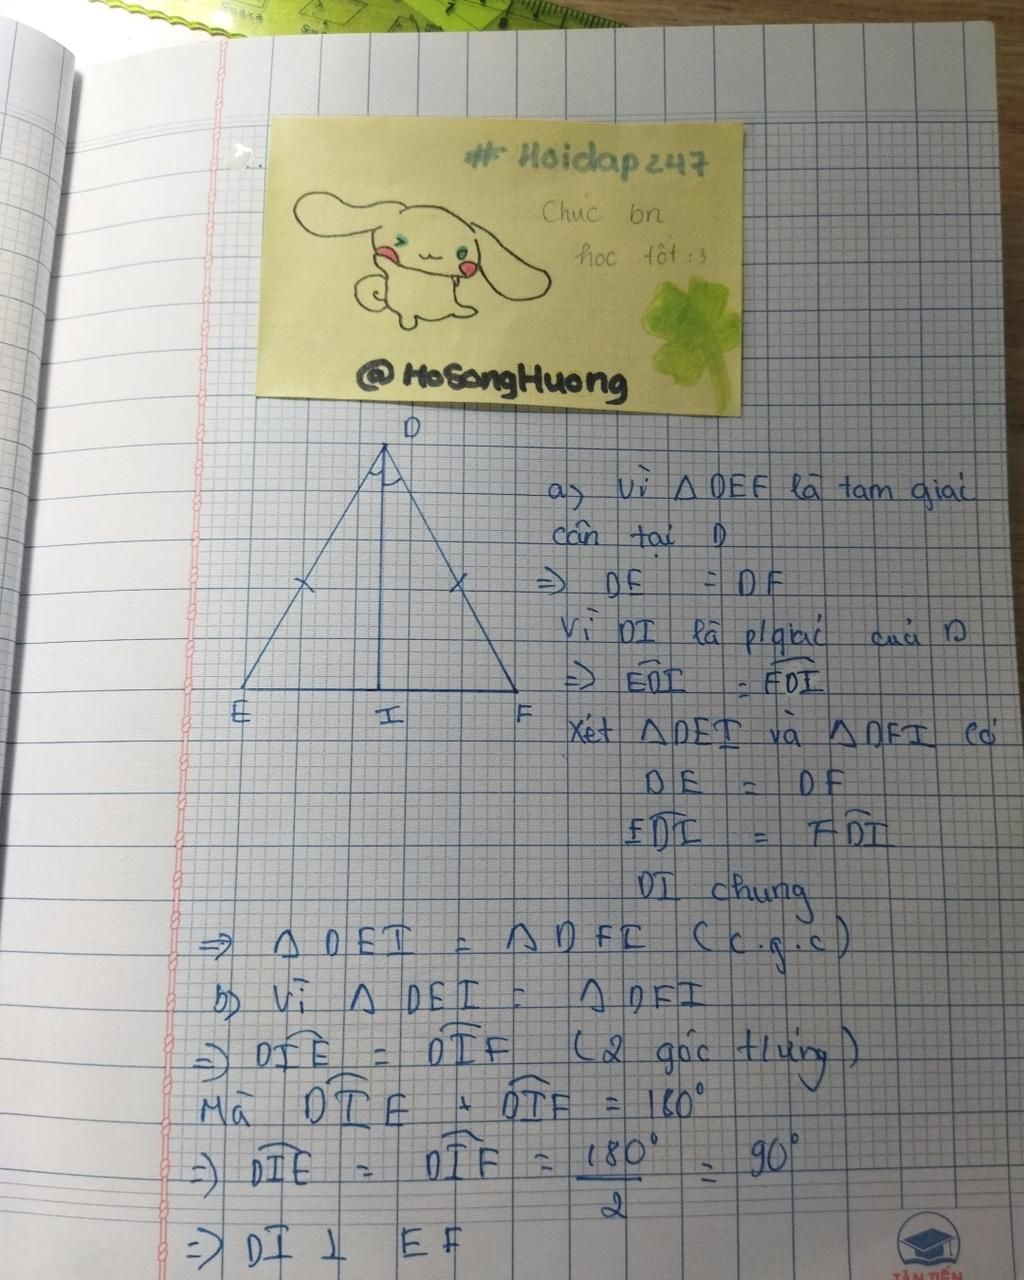 # Hoidap247
Chúc bn
học tốt :3
@HoSongHuong
D
E I F
a) Vì Δ DEF là tam giác
cân tại D
=> DE = DF
Vì DI là p/giác của D
=> EDI = FDI
Xét Δ DEI và Δ DFI có
DE = DF
EDI = FDI
DI chung
=> Δ DEI = Δ DFI (c.g.c)
b) Vì Δ DEI = Δ DFI
=> DIE = DIF (2 góc t/ứng)
Mà DIE + DIF = 180°
=> DIE = DIF = 180°/2 = 90°
=> DI ⊥ EF
TÂN TIẾN